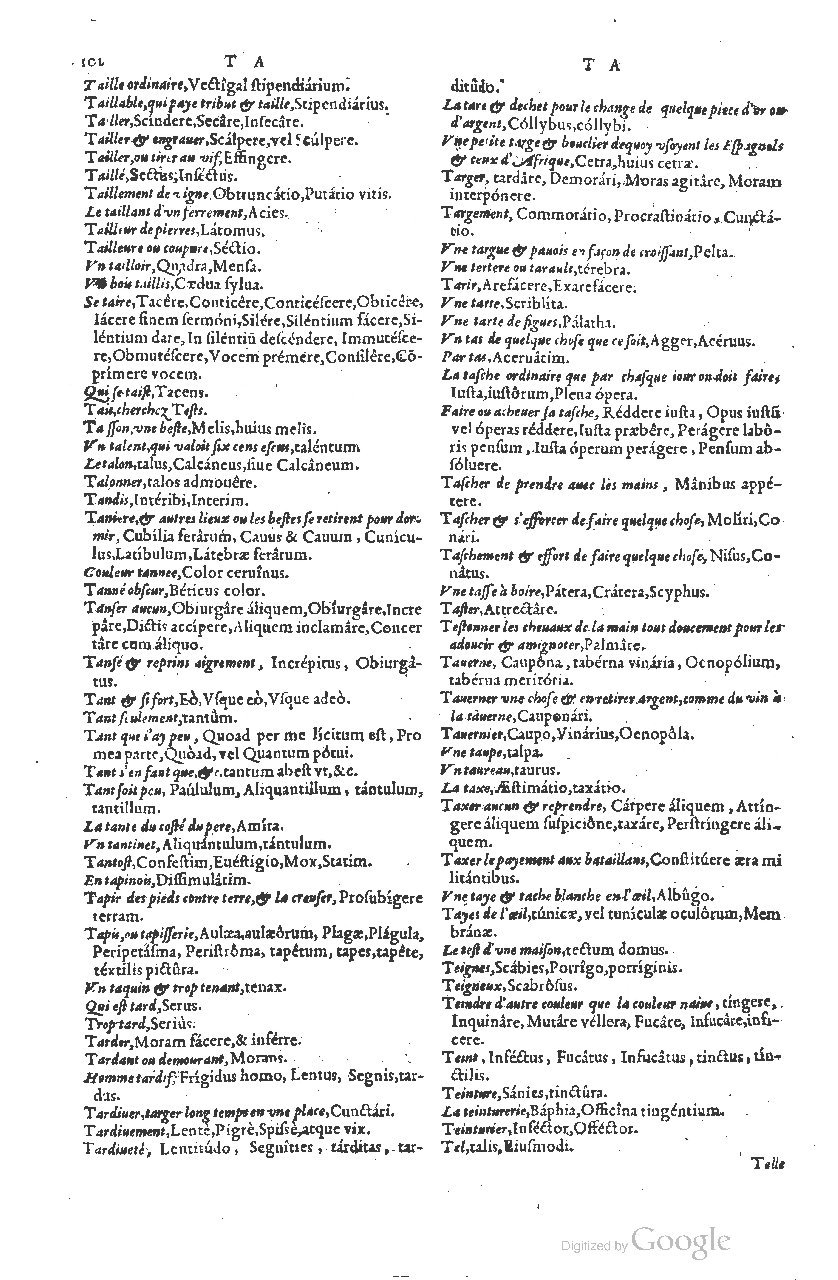 T A
Taille ordinaire, Vectîgal ſtipendiárium.
Taillable, qui paye tribut & taille, Stipendiárius.
Tailler, Scíndere, Secâre, Inſecâre.
Tailler & engrauer, Scálpere, vel Scúlpere.
Tailler, ou tirer au vif, Effingere.
Taillé, Sectus, Inſéctus.
Taillement de vigne, Obtruncátio, Putátio vitis.
Le taillant d'vn ferrement, Acies.
Tailleur de pierres, Látomus.
Tailleure ou coupure, Séctio.
Vn tailloir, Quadra, Menſa.
Vn bois taillis, Cædua ſylua.
Se taire, Tacêre, Conticêre, Conticéſcere, Obticêre,
Iácere finem ſermóni, Silére, Siléntium fácere, Si-
léntium dare, In ſiléntiũ deſcéndere, Immutéſce-
re, Obmutéſcere, Vocem prémere, Conſilêre, Cõ-
prímere vocem.
Qui ſe taiſt, Tacens.
Tau, cherchez Teſts.
Taſſon, vne beſte, Melis, huius melis.
Vn talent, qui valoit ſix cens eſcus, taléntum
Le talon, talus, Calcáneus, ſiue Calcâneum.
Talonner, talos admouêre.
Tandis, Intéribi, Interim.
Taniere, & autres lieux ou les beſtes ſe retirent pour dor-
mir, Cubilia ferârum, Cauus & Cauum, Cunícu-
lus, Latíbulum, Látebræ ferârum.
Couleur tannee, Color ceruînus.
Tanné obſcur, Béticus color.
Tanſer aucun, Obiurgâre áliquem, Obíurgâre, Incre
pâre, Dictis accípere, Aliquem inclamâre, Concer
târe cum áliquo.
Tanſé & reprins aigrement, Incrépitus, Obiurgâ-
tus.
Tant & ſi fort, Eò, Vſque eò, Vſque adeò.
Tant ſeulement, tantùm.
Tant que i'ay peu, Quoad per me licitum eſt, Pro
mea parte, Quòad, vel Quantum pótui.
Tant s'en faut que, &c. tantum abeſt vt, &c.
Tant ſoit peu, Paúlulum, Aliquantillum, tántulum,
tantillum.
La tante du coſté du pere, Amíta.
Vn tantinet, Aliquántulum, tántulum.
Tantoſt, Confeſtim, Euéſtigio, Mox, Statim.
En tapinois, Diſſimulâtim.
Tapir des pieds contre terre, & la creuſer, Proſubígere
terram.
Tapis, ou tapiſſerie, Aulæa, aulæôrum, Plagæ, Plágula,
Peripetáſma, Periſtrôma, tapêtum, tapes, tapête,
téxtilis pictûra.
Vn taquin & trop tenant, tenax.
Qui eſt tard, Serus.
Trop tard, Seriùs.
Tarder, Moram fácere, & inférre.
Tardant ou demourant, Morans.
Homme tardif, Frígidus homo, Lentus, Segnis, tar-
dus.
Tardiuer, targer long temps en vne place, Cunctári.
Tardiuement, Lentè, Pigrè, Spiſsè, atque vix.
Tardiueté, Lentitúdo, Segnîties, tárditas, tar-
T A
ditûdo.
La tare & dechet pour le change de quelque piece d'or ou
d'argent, Cóllybus, cóllybi.
Vne petite targe & bouclier dequoy vſoyent les Eſpagnols
& ceux d'Afrique, Cetra, huius cetræ.
Targer, tardâre, Demorári, Moras agitâre, Moram
interpónere.
Targement, Commorátio, Procraſtinátio, Cunctá-
tio.
Vne targue & pauois en façon de croiſſant, Pelta.
Vne tertere ou tarault, térebra.
Tarir, Arefácere, Exarefácere.
Vne tarte, Scriblîta.
Vne tarte de figues, Pálatha.
Vn tas de quelque choſe que ce ſoit, Agger, Acéruus.
Par tas, Aceruâtim.
La taſche ordinaire que par chaſque iour on doit faire,
Iuſta, iuſtôrum, Plena ópera.
Faire ou acheuer ſa taſche, Réddere iuſta, Opus iuſtũ
vel óperas réddere, Iuſta præbêre, Perágere labô-
ris penſum, Iuſta óperum perágere, Penſum ab-
ſóluere.
Taſcher de prendre auec les mains, Mánibus appé-
tere.
Taſcher & s'efforcer de faire quelque choſe, Molíri, Co
nári.
Taſchement & effort de faire quelque choſe, Niſus, Co-
nâtus.
Vne taſſe à boire, Pátera, Crátera, Scyphus.
Taſter, Attrectâre.
Teſtonner les cheuaux de la main tout doucement pour les
adoucir & amignoter, Palmâre.
Tauerne, Caupóna, tabérna vinária, Ocnopólium,
tabérna meritória.
Tauerner vne choſe & en retirer argent, comme du vin à
la tauerne, Cauponári.
Tauernier, Caupo, Vinárius, Oenopôla.
Vne taupe, talpa.
Vn taureau, taurus.
La taxe, Æſtimátio, taxátio.
Taxer aucun & reprendre, Cárpere áliquem, Attín-
gere áliquem ſuſpiciône, taxáre, Perſtríngere áli-
quem.
Taxer le payement aux bataillans, Conſtitúere æra mi
litántibus.
Vne taye & tache blanche en l'œil, Albûgo.
Tayes de l'œil, túnicæ, vel tunículæ oculôrum, Mem
bránæ.
Le teſt d'vne maiſon, tectum domus.
Teignes, Scábies, Porrîgo, porríginis.
Teigneux, Scabrôſus.
Teindre d'autre couleur que la couleur naiue, tíngere,
Inquinâre, Mutâre véllera, Fucâre, Infucâre, infi-
cere.
Teint, Inféctus, Fucâtus, Infucâtus, tinctus, tin-
ctilis.
Teinture, Sánies, tinctûra.
La teinturerie, Báphia, Officîna tingéntium.
Teinturier, Inféctor, Offéctor.
Tel, talis, Eiuſmodi.
Telle
Digitized by Google